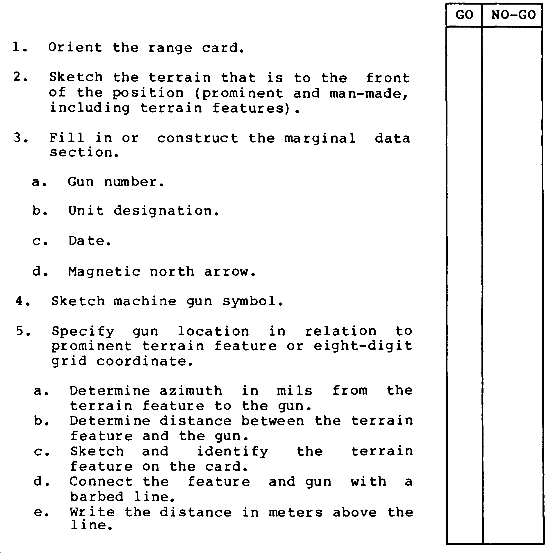 GO NO-GO
1. Orient the range card.
2. Sketch the terrain that is to the front
of the position (prominent and man-made,
including terrain features).
3. Fill in or construct the marginal data
section.
a. Gun number.
b. Unit designation.
c. Date.
d. Magnetic north arrow.
4. Sketch machine gun symbol.
5. Specify gun location in relation to
prominent terrain feature or eight-digit
grid coordinate.
a. Determine azimuth in mils from the
terrain feature to the gun.
b. Determine distance between the terrain
feature and the gun.
c. Sketch and identify the terrain
feature on the card.
d. Connect the feature and gun with a
barbed line.
e. Write the distance in meters above the
line.